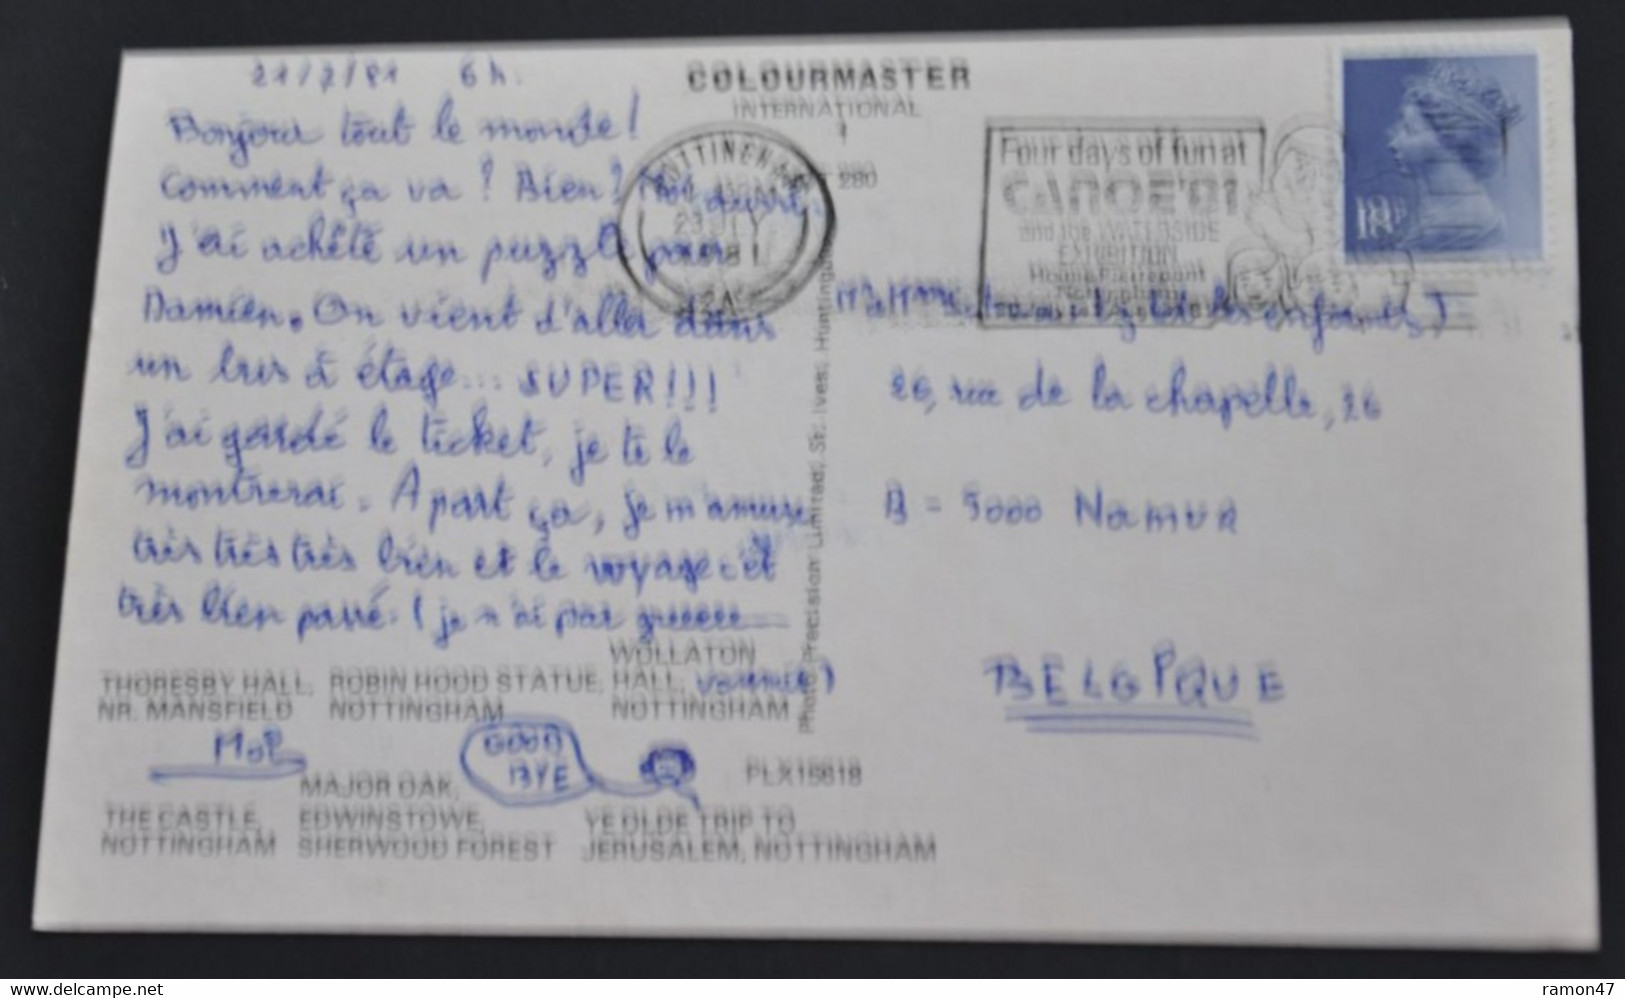 21/7/81 6 h.
Bonjour tout le monde!
Comment ça va? Bien? Moi aussi.
J'ai achêté un puzzle pour
Damien. On vient d'aller dans
un bus à étage... SUPER!!!
J'ai gardé le ticket, je te le
montrerai. A part ça, je m'amuse
très très très bien et le voyage s'est
très bien passé. (je n'ai pas
vomi)
COLOURMASTER
INTERNATIONAL
280
NOTTINGHAM
1981
Four days of fun at
CANOE'81
and the WATERSIDE
EXHIBITION
Holme Pierrepont
Nottingham
Mr, Mme et les enfants)
26, rue de la chapelle, 26
B = 5000 NAMUR
BELGIQUE
Photo Precision Limited, St. Ives, Huntingdon
THORESBY HALL,
NR. MANSFIELD
ROBIN HOOD STATUE,
NOTTINGHAM
WOLLATON
HALL,
NOTTINGHAM
GOOD
BYE
PLX15618
THE CASTLE,
NOTTINGHAM
MAJOR OAK,
EDWINSTOWE,
SHERWOOD FOREST
YE OLDE TRIP TO
JERUSALEM, NOTTINGHAM
ramon47